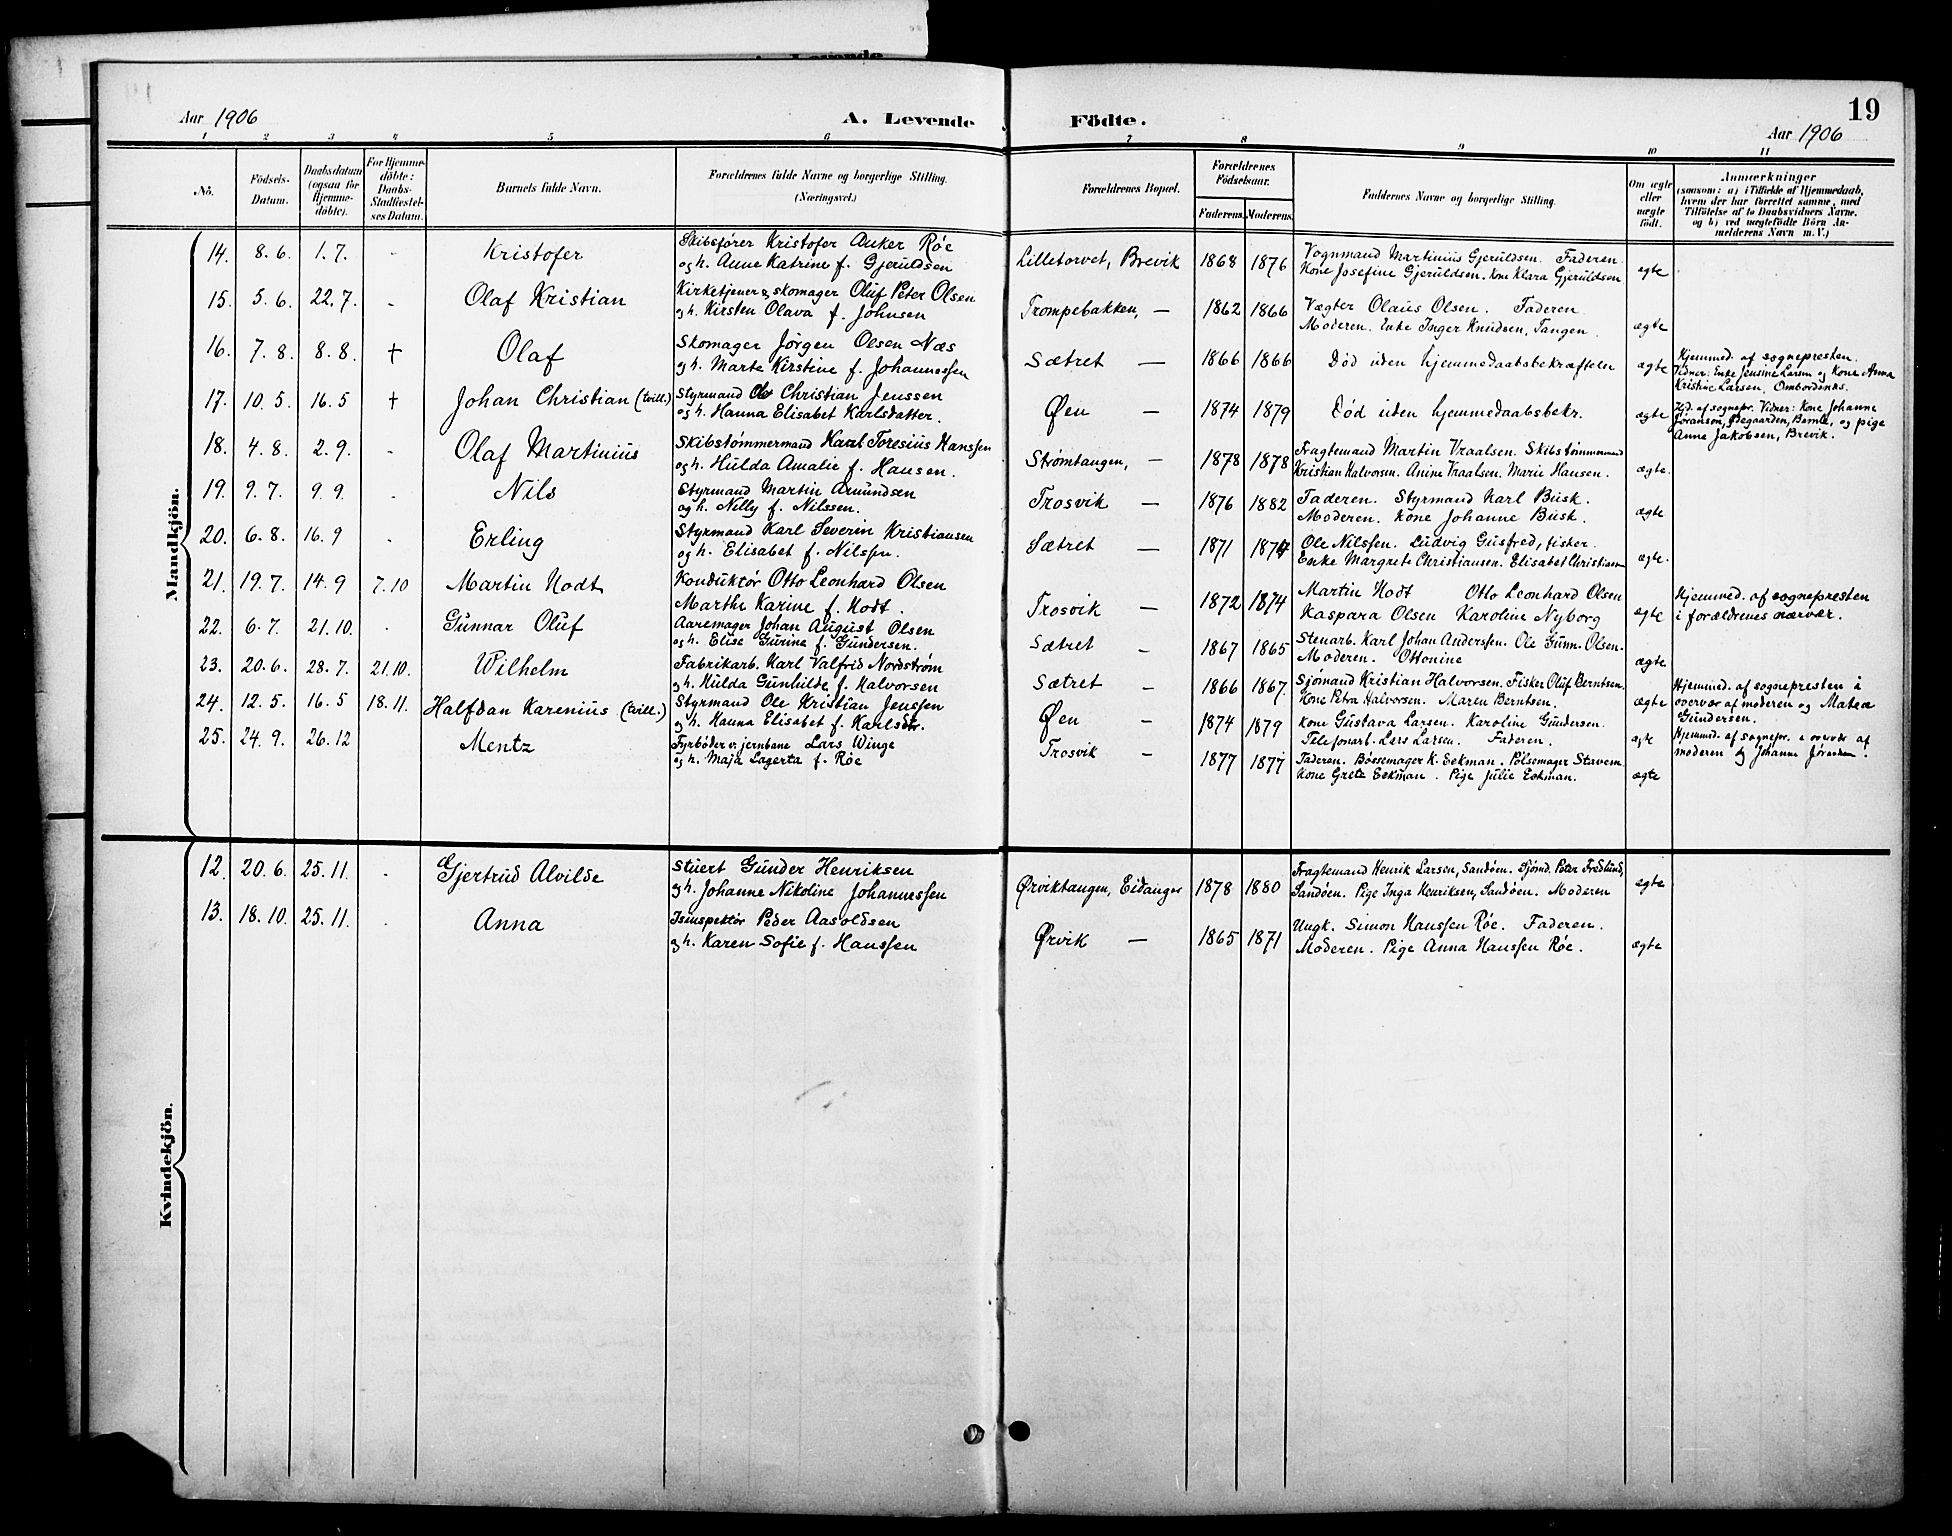 Levende
19
Aar 1906
A. Levende
Födte.
Aar 1906
1 2 3 4 5 6 7 8 9 10 11
No.
Födsels-Datum.
Daabsdatum (ogsaa for Hjemme-döbte).
For Hjemme-döbte: Daabs-Stadfæstel-ses Datum.
Barnets fulde Navn.
Forældrenes fulde Navne og borgerlige Stilling. (Næringsvei.)
Forældrenes Bopæl.
Forældrenes Födselsaar.
Faderens. Moderens.
Faddernes Navne og borgerlige Stilling.
Om ægte eller uægte födt.
Anmærkninger
(saasom: a) i Tilfælde af Hjemmedaab, hvem der har forrettet samme, med Tilföielse af to Daabsvidners Navne, og b) ved uægtefödte Börn An-melderens Navn m. V.)
Mandkjön.
14. 8.6. 1.7. - Kristofer Skibsfører Kristofer Anker Røe Lilletorvet, Brevik 1868 1876 Vognmand Martinius Gjeruldsen. Faderen. ægte
og h. Anne Katrine f. Gjeruldsen Kone Josefine Gjeruldsen. Kone Klara Gjeruldsen
15. 5.6. 22.7. - Olaf Kristian Kirketjener & skomager Oluf Peter Olsen Trompebakken, — 1862 1866 Vægter Olaus Olsen. Faderen ægte
og h. Kirsten Olava f. Johnsen Moderen. Enke Inger Knudsen, Tangen.
16. 7.8. 8.8. + Olaf Skomager Jørgen Olsen Næs Sætret — 1866 1866 Død uden hjemmedaabsbekræftelse ægte Hjemmed. af sognepresten.
og h. Marte Kirstine f. Johannessen Vidner: Enke Jensine Larsen og Kone Anna
Kristine Larsen, Ombordsnæs.
17. 10.5. 16.5 + Johan Christian (tvill.) Styrmand Christian Jenssen Øen — 1874 1879 Død uden hjemmedaabsbekr. ægte Hjd. af sognepr. Vidner: Kone Johanne
og h. Hanna Elisabet Karlsdatter. Jøransen, Ødegaarden, Bamle, og pige
Anne Jakobsen, Brevik.
18. 4.8. 2.9. - Olaf Martinius Skibstømmermand Karl Toresius Hanssen Strømtangen, — 1878 1878 Fragtemand Martin Vraalsen. Skibstømmermand ægte.
og h. Hulda Amalie f. Hansen. Kristian Halvorsen. Anine Vraalsen. Marie Hansen.
19. 9.7. 9.9. - Nils Styrmand Martin Amundsen Trosvik — 1876 1882 Faderen. Styrmand Karl Busk. ægte
og h. Nilly f. Nilssen. Moderen. Kone Johanne Busk.
20. 6.8. 16.9 - Erling Styrmand Karl Severin Kristiansen Sætret — 1871 1874 Ole Nilssen. Ludvig Gusfred, fisker. ægte.
og h. Elisabet f. Nilssen. Enke Margrete Christiansen. Elisabet Christiansen
21. 19.7. 14.9 7.10 Martin Hodt Konduktør Otto Leonhard Olsen Trosvik — 1872 1874 Martin Hodt Otto Leonhard Olsen ægte Hjemmed. af sognepresten
Marthe Karine f. Hodt. Kaspara Olsen Karoline Nyborg i forældrenes nærvær.
22. 6.7. 21.10. - Gunnar Oluf Aaremager Johan August Olsen Sætret - 1867 1865 Stenarb. Karl Johan Anderssen. Ole Gunn. Olsen. ægte
og h. Elise Gurine f. Gundersen. Moderen. Ottonine
23. 20.6. 28.7. 21.10. Wilhelm Fabrikarb. Karl Valfrid Nordstrøm Sætret - 1866 1867. Sjømand Kristian Halvorsen. Fisker Oluf Berntsen. ægte Hjemmed. af sognepresten i
og h. Hulda Gunhilde f. Halvorsen Kone Petra Halvorsen. Maren Berntsen. overvær af moderen og Matea
Gundersen.
24. 12.5. 16.5 18.11. Halfdan Karenius (tvill.) Styrmand Ole Kristian Jenssen Øen - 1874 1879 Kone Gustava Larsen. Karoline Gundersen. ægte Hjemmed. af sognepr. i overvær af
og h. Hanna Elisabet f. Karlsdtr. Telefonarb. Lars Larsen. Faderen. moderen og Johanne Jøransen.
25. 24.9. 26.12 Mentz Fyrbøder v. jernbane Lars Winge Trosvik - 1877 1877 Faderen. Bøssemager K. Eekman. Pølsemager Stavem. ægte
og h. Maja Lagerta f. Røe Kone Grete Eekman. Pige Julie Eekman.
Kvindekjön.
12. 20.6. 25.11. - Gjertrud Alvilde Stuert Gunder Henriksen Ørviktangen, Eidanger 1878 1880 Fragtemand Henrik Larsen, Sandøen. Sjømd. Peter Fredlund, ægte
og h. Johanne Nikoline Johannessen Sandøen. Pige Inga Henriksen, Sandøen. Moderen
13. 18.10. 25.11. - Anna Isinspektør Peder Aasoldsen Ørvik — 1865 1871 Ungk. Simon Hanssen Røe. Faderen. ægte
og h. Karen Sofie f. Hanssen Moderen. Pige Anna Hanssen Røe.